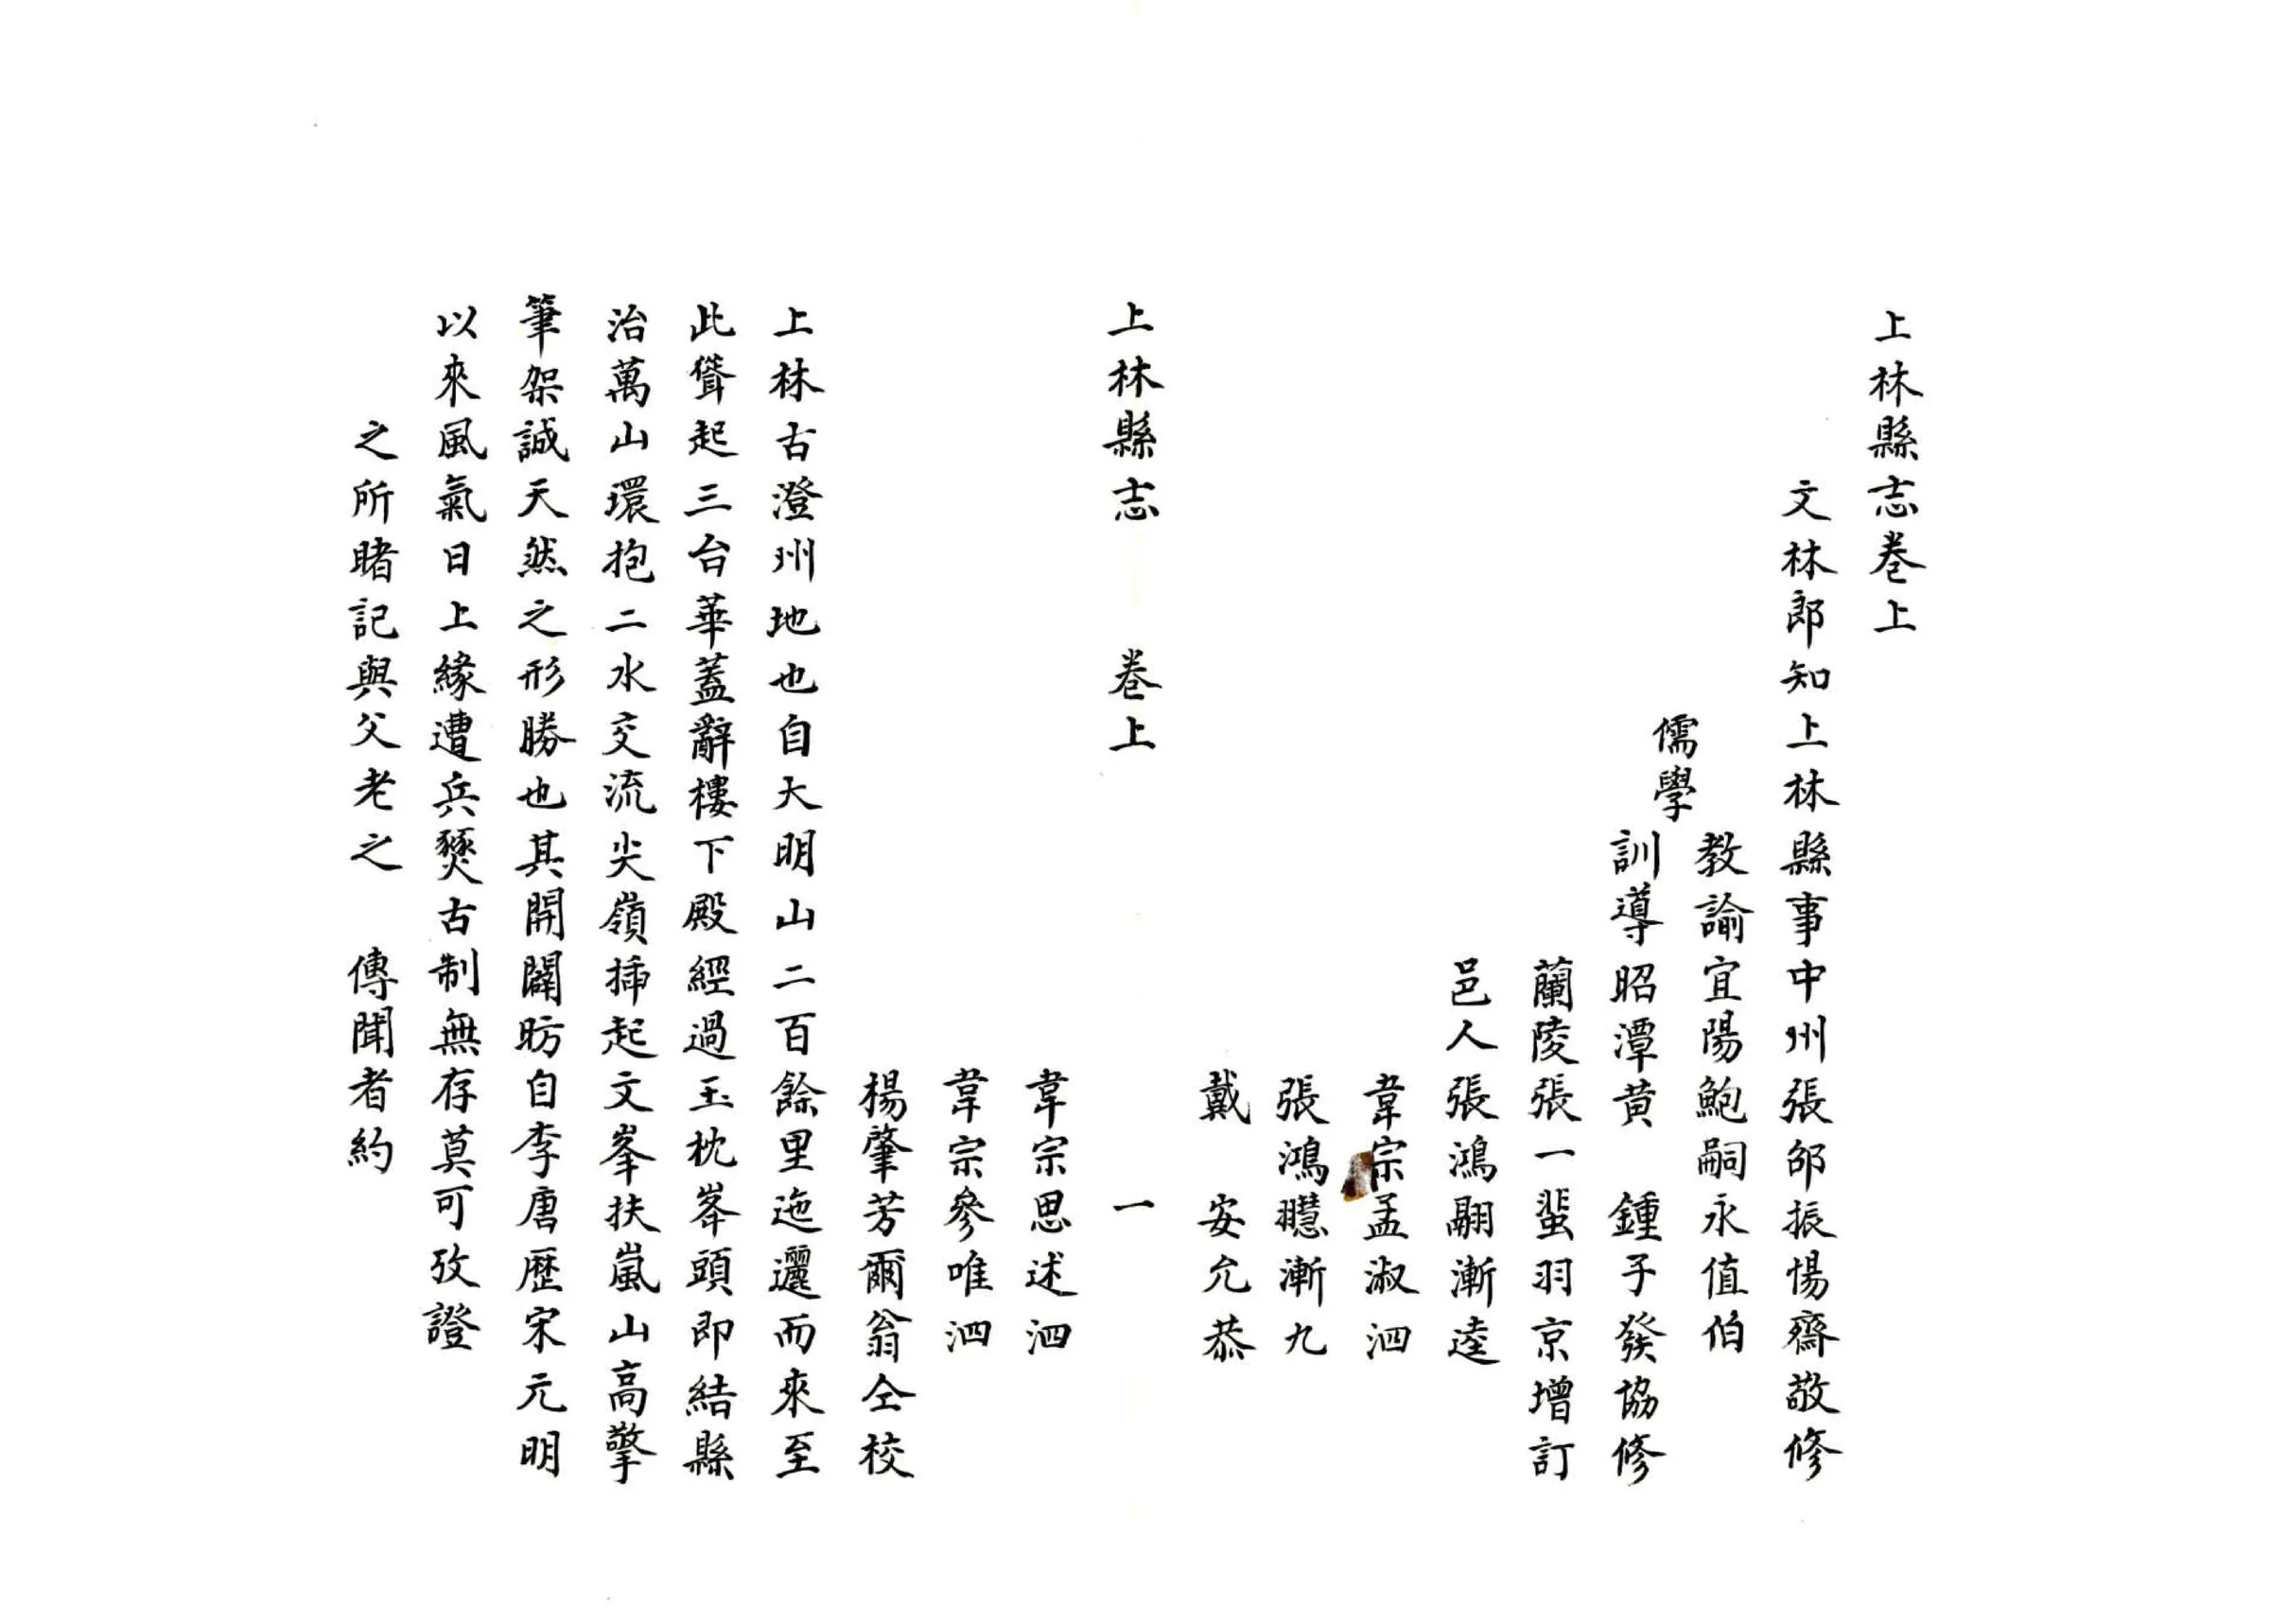 上林縣志卷上
文林郎知上林縣事中州張邵振惕齋敬修
儒學
教諭宜陽鮑嗣永值伯
訓導昭潭黄 鍾子發協修
蘭陵張一蜚羽京增訂
邑人張鴻翮漸逵
韋宗孟淑泗
張鴻𬀪漸九
戴 安允恭
上林縣志 卷上 一
韋宗思述泗
韋宗參唯泗
楊肇芳爾翁仝校
上林古澄州地也自大明山二百餘里迤邐而來至
此聳起三台華蓋辭樓下殿經過玉枕峯頭即結縣
治萬山環抱二水交流尖嶺挿起文峯扶嵐山高擎
筆架誠天然之形勝也其開闢昉自李唐歷宋元明
以來風氣日上緣遭兵燹古制無存莫可攷證
之所睹記與父老之 傳聞者約